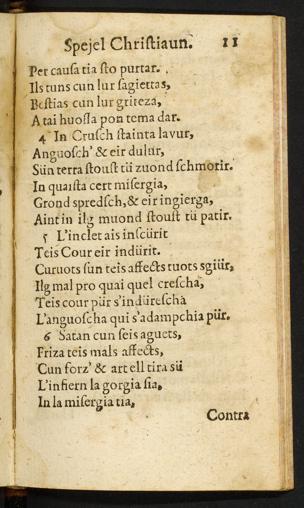 Spejel Christiaun. 11
Per causa tia sto purtar.
Ils tuns cun lur sagiettas,
Bestias cun lur griteza,
A tai huossa pon tema dar.
4 In Crusch stainta lavur,
Anguosch' & eir dulur,
Sün terra stoust tü zuond schmorir.
In quaista cert misergia,
Grond spredsch, & eir ingierga,
Aint in ilg muond stoust tü patir.
5 L'inclet ais inscürit
Teis Cour eir indürit.
Curuots sun teis affects tuots sgiür,
Ilg mal pro quai quel crescha,
Teis cour pür s'indürescha
L'anguoscha qui s'adampchia pür.
6 Satan cun seis aguets,
Friza teis mals affects,
Cun forz' & art ell tira sü
L'infiern la gorgia sia,
In la misergia tia,
Contra